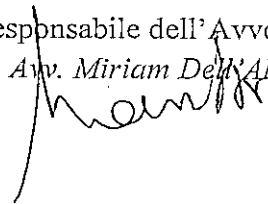 esponsabile dell'Avvo
Avv. Miriam Dell'Al